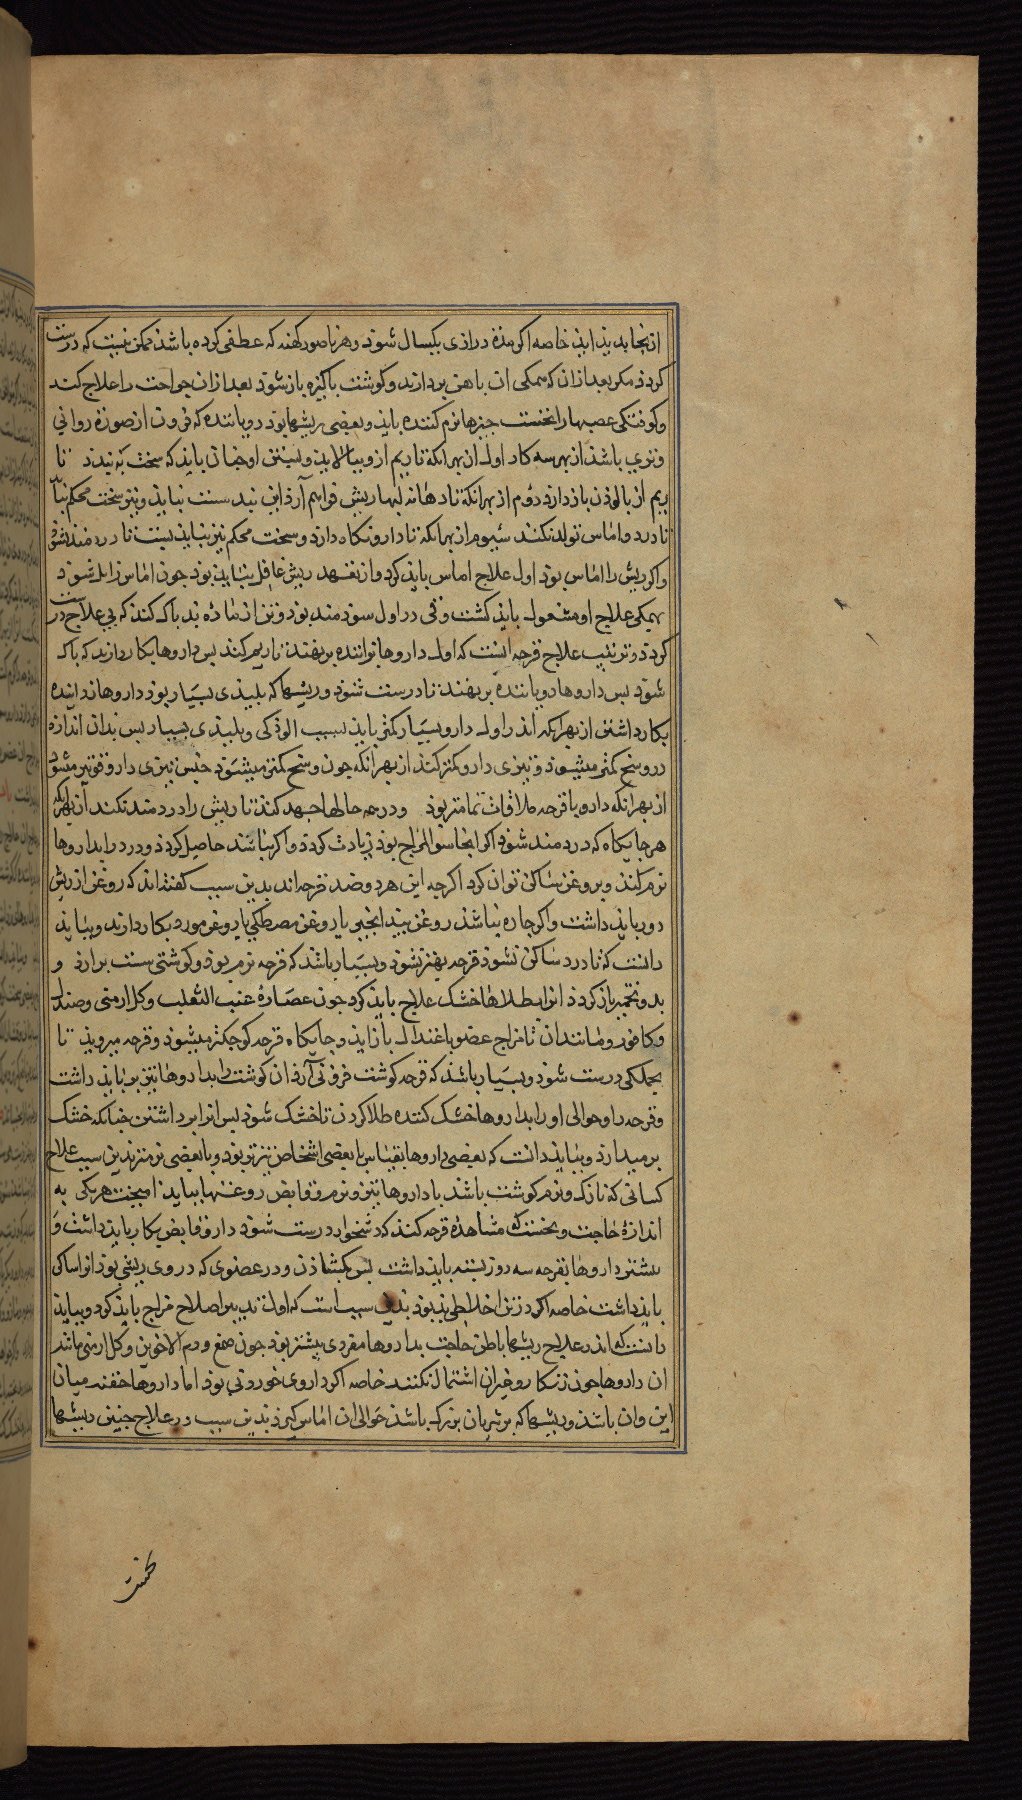 از نجا بدید ایذ خاصه اکر مدة درازی یکسال شود وهر ناصور کهنه که عطفی کرده باشد ممکن نیست که درست
کردد مکر بعد ازان که همکی ان باهن بردارند وکوشت باکیزه بازشود بعد ازان جراحت را علاج کنند
وکوفتکی عصبها را نخست جیزها نرم کننده باید وبعضی ریشها بود رویاننده که فرو از روانی
وتری باشد از بهر سه کار اول از بهر انکه تا ریم ازو بیالاید وبستن او جنان باید که سخت به بندد تا
ریم از بالوذن باز دارد دوم از بهر انکه تا دهانه لبهاء ریش فراهم آرد این بند سست نباید ونیز سخت محکم نباید
تا درد واماس تولد نکند سیوم از بهر انکه تا دارو نکاه دارد وسخت محکم نیز نباید بست تا دردمند نشود
واکر ریش را اماس بود اول علاج اماس باید کرد واز تعهد ریش غافل نباید بود جون اماس زایل شود
بهمکی علاج او مشغول باید کشت وقی در اول سودمند بود وتن از ماده بد باک کند که بی علاج درست
کردد وترتیب علاج قرحه انست که اول داروها براننده بر نهند تا ریم کند بس داروها بکار دارند که باک
شود بس داروها رویاننده بر نهند تا درست شود وریشها که بلیدی بسیار بود داروها زداینده
بکار داشتن از بهر انکه اندر اول دارو بسیار کمتر باید بسبب الودکی وبلیدی بسیار بس بدان اندازه
در وسخ کمتر میشود وتیزی دارو کمتر کند از بهر انکه جون وسخ کمتر میشود حس تیزی دارو قویتر میشود
از بهر انکه دارو با قرحه ملاقات تمامتر بود ودر همه حالها جهد کند تا ریش را دردمند نکند از بهر انکه
هر جایکاه که دردمند شود اکر انجا سوالمزاج بود زیادت کردد واکر نباشد حاصل کردد ودرد را بداروها
نرم کنند وبروغن ساکن توان کرد اکرجه این هر دو ضد قرحه اند بدین سبب کفته اند که روغن از ریش
دور باید داشت واکر جاره نباشد روغن بید انجیر یا روغن مصطکی یا روغن مورد بکار دارند وبباید
دانست که تا درد ساکن نشود قرحه بهتر نشود وبسیار باشد که قرحه نرم بود وکوشتی سست برارد و
بدو نتیجه باز کردد انرا بطلاها خشک علاج باید کرد جون عصارة عنب الثعلب وکل ارمنی وصندل
وکافور ومانند ان تا مزاج عضو باعتدال باز اید وجایکاه قرحه کوجکتر میشود وقرحه میروید تا
بجملکی درست شود وبسیار باشد که قرحه کوشت فزونی آرد ان کوشت را بداروها تیز بر باید داشت
وقرحه را وحوالی او را بداروها خشک کننده طلا کردن تا خشک شود بس انرا برداشتن جنانکه خشک
بر میدارد وبباید دانست که بعضی داروها بقیاس با بعضی اشخاص تیزتر بود وبا بعضی نرمتر بدین سبب علاج
کسانی که نازک ونرم کوشت باشد با داروها تیز ونرم وقابض روغنها بباید امیخت هر یکی به
اندازة حاجت ونخست که مشاهدة قرحه کند که دشخوار درست شود دارو قابض بکار باید داشت و
بیشتر داروها بقرحه سه روز بسته باید داشت بس بکشاذن ودر عضوی که در وی ریشی بود انرا ساکن
باید داشت خاصه اکر در تن اخلاطی بد بود بدین سبب است که اول تدبیر اصلاح مزاج باید کرد وبباید
دانست که اندر علاج ریشها باطن حاجت بداروها مغری بیشتر بود جون صمغ ودم الاخوین وکل ارمنی مانند
ان داروها جون زنکار وغیر ان استعمال نکنند خاصه اکر داروی خوردنی بود اما داروها حقنه میان
این وان باشد وریشها که بر شریان بزرک باشد حوالی ان اماس کیرد بدین سبب در علاج جنین ریشها
نخست